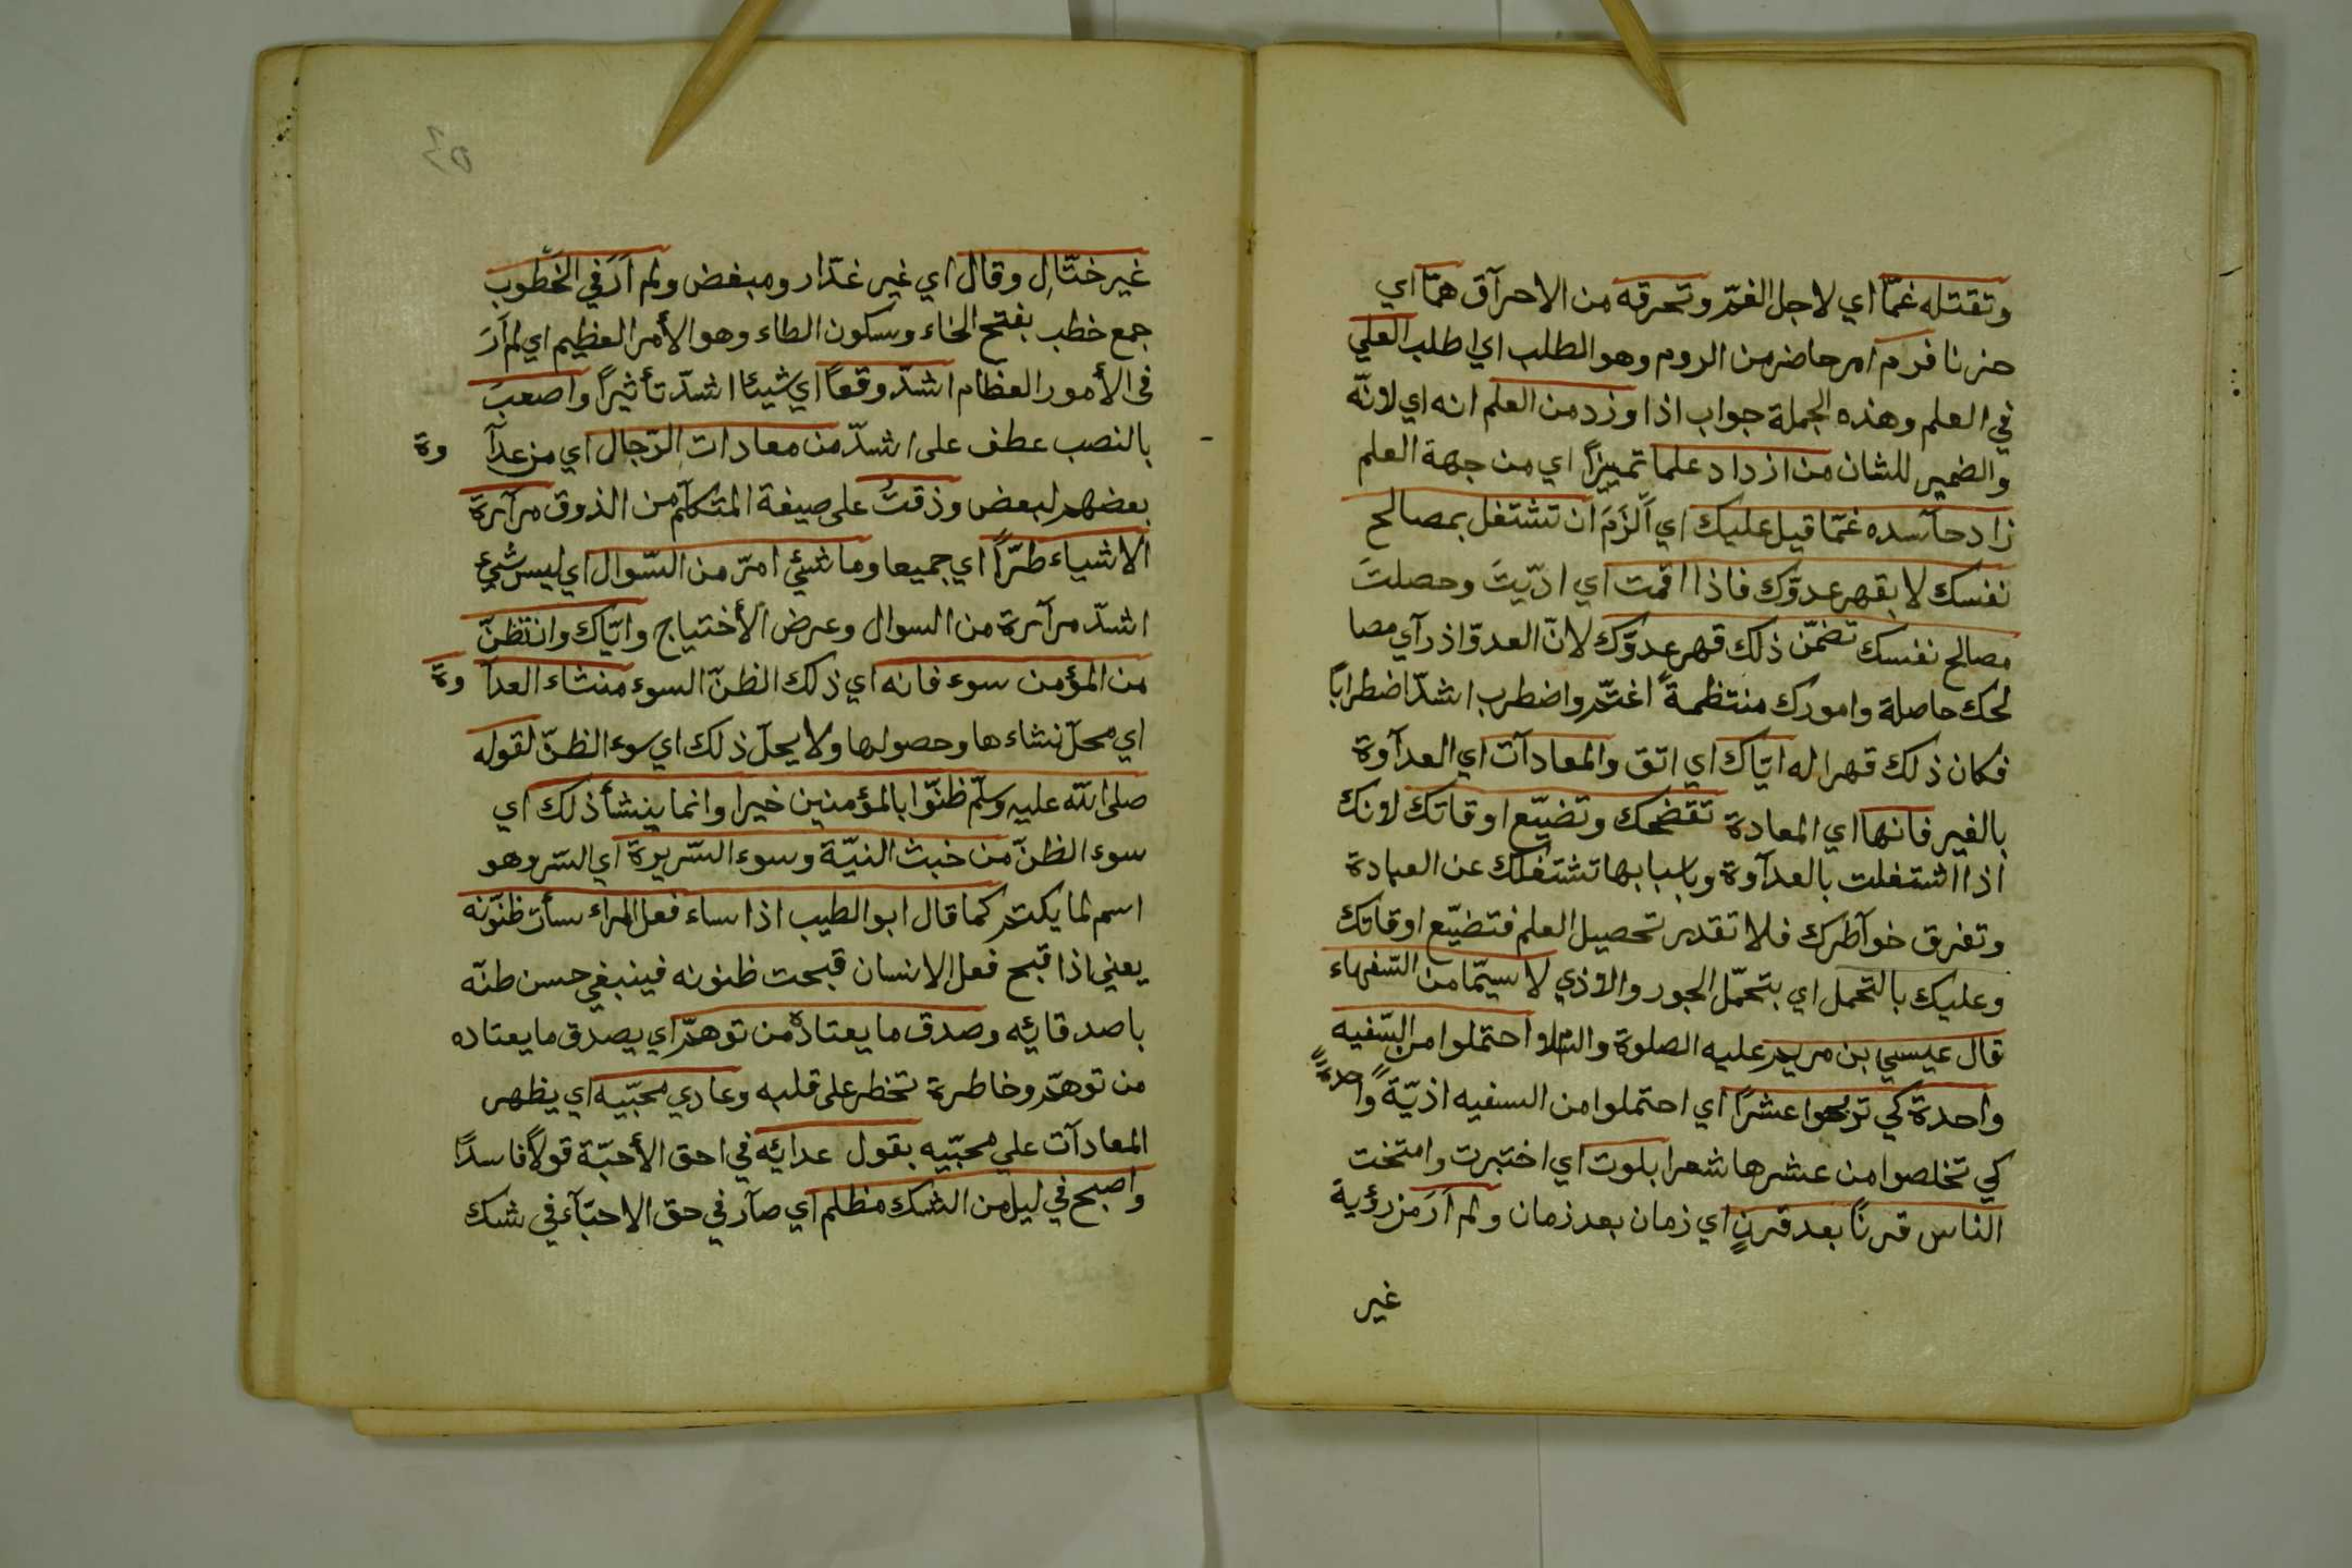 وتقتله غمّا اي لاجل الغمّ وتحرقه من الاحرآق همّا اي
حزنا فرم امر حاضر من الروم وهو الطلب اي اطلب العلي
في العلم وهذه الجملة جواب اذا وزد من العلم انه اي لانّه
والضمير للشان من ازداد علما تمييزاً اي من جهة العلم
زاد حآسده غمّا قيل عليك اي اَلزَمَ ان تشتغل بمصالح
نفسك لا بقهر عدوّك فاذا اقمت اي ادّيتَ وحصلتَ
مصالح نفسك تضمّن ذلك قهر عدوّك لانّ العدوّ اذ رآي مصا
لحك حاصلة وامورك منتظمةً اغتمّ واضطرب اشدّ اضطراباً
فكان ذلك قهرا له ايّاك اي اتق والمعادآت اي العدآوة
بالغير فانها اي المعادة تفضحك وتضيّع اوقاتك لانك
اذا اشتغلت بالعدآوة وباسبابها تشتغلك عن العبادة
وتفرق خوآطرك فلا تقدر تحصيل العلم فتضيّع اوقاتك
وعليك بالتحمل اي بتحمّل الجور والاذي لا سيّما من السّفهاء
قال عيسي بن مريم عليه الصلوة والسّلام احتملوا من السّفيه
واحدة كي تربحوا عشراً اي احتملوا من السفيه اذيّةً واحدةً
كي تخلصوا من عشرها شعرا بلوت اي اختبرت وامتحنت
الناس قرناً بعد قرنٍ اي زمان بعد زمان ولم اَرَ من رؤية
غير
غير ختّالٍ وقال اي غير غدّار ومبغض ولم اَرَ في الخطوب
جمع خطب بفتح الخاء وسكون الطاء وهو الأمر العظيم اي لم اَرَ
في الأمور العظام اشدّ وقعاً اي شيئا اشدّ تأثيراً واصعبَ
بالنصب عطف على اشدّ من معادات الرّجال اي من عدآوة
بعضهم لبعض وذقتُ على صيغة المتكلّم من الذوق مرآرة
الاشياء طرّاً اي جميعا وما شئ امرّ من السّوال اي ليس شئ
اشدّ مرآرة من السوال وعرض الأختياج وايّاك وان تظنّ
من المؤمن سوء فانه اي ذلك الظنّ السوء منشاء العدآوة
اي محلّ نشاءها وحصولها ولا يحلّ ذلك اي سوء الظنّ لقوله
صلى الله عليه وسلّم ظنّوا بالمؤمنين خيرا وانما ينشأ ذلك اي
سوء الظنّ من خبث النيّة وسوء السّريرة اي السّر وهو
اسم لما يكتم كما قال ابو الطيب اذا ساء فعل المرء سأت ظنّونه
يعني اذا قبح فعل الانسان قبحت ظنونه فينبغي حسن طنّه
باصدقائه وصدق ما يعتاده من توهّم اي يصدق ما يعتاده
من توهّم وخاطرة تخطر على قلبه وعادي محبّيه اي يظهر
المعادآت علي محبّيه بقول عدائه في احق الأحبّة قولاً فاسداً
واصبح في ليل من الشك مظلم اي صآر في حق الاحبّآء في شك